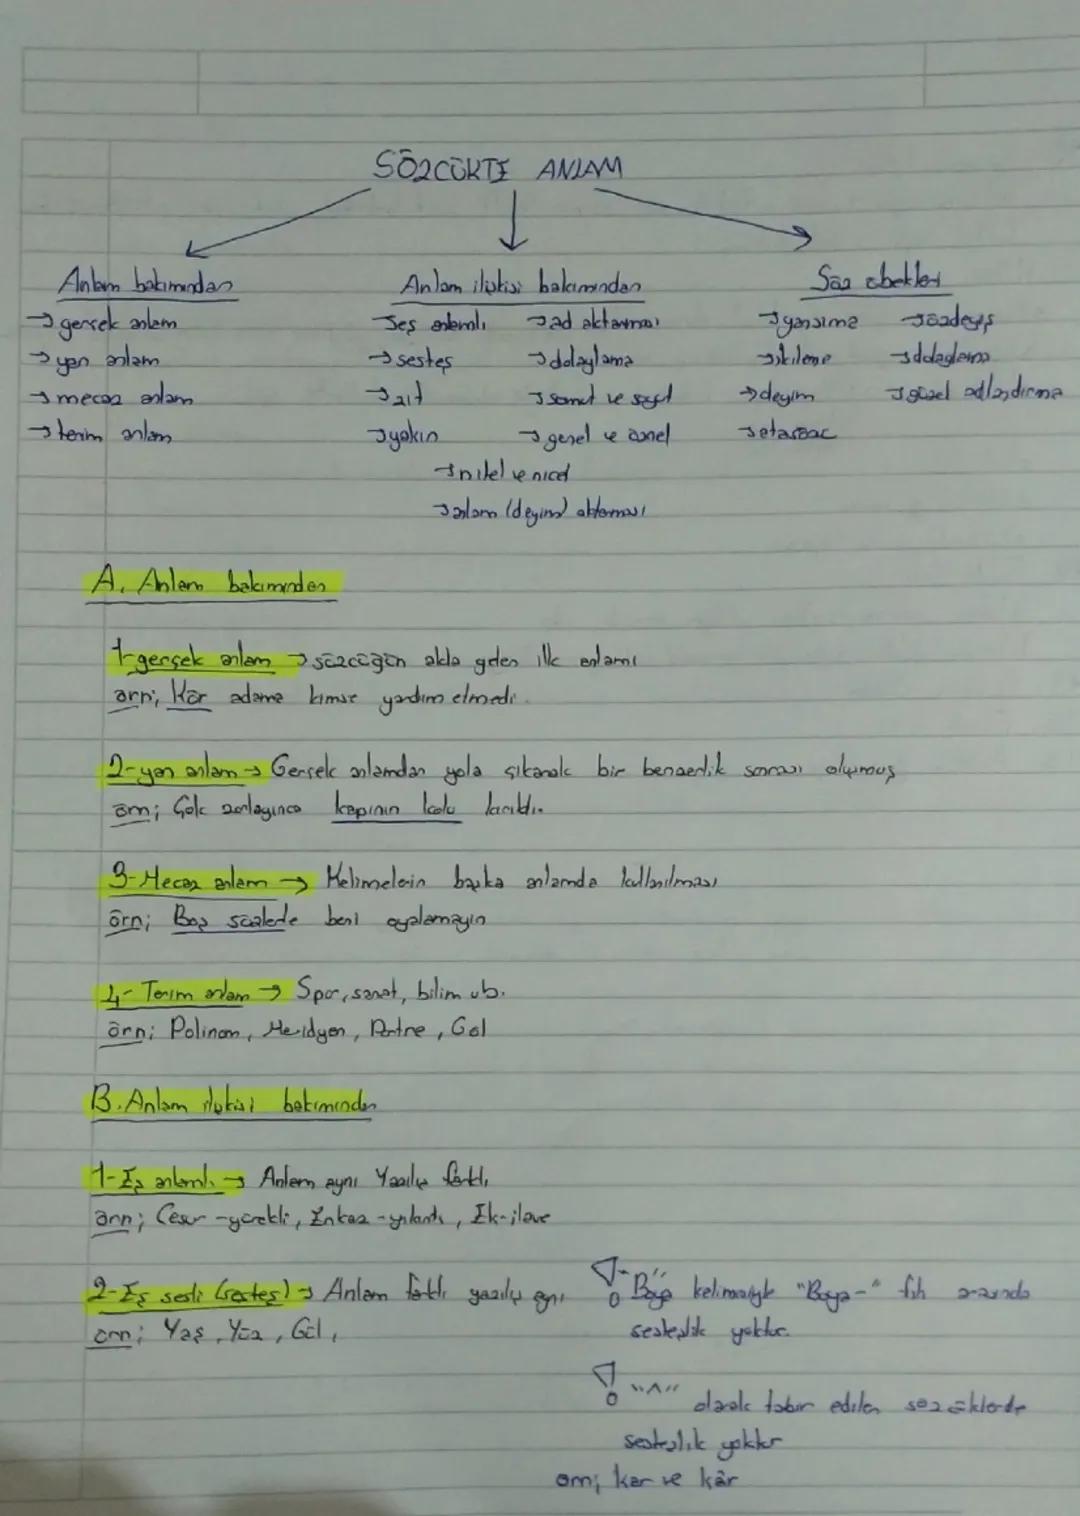 SÖZCÜKTE ANLAM
Anlam bakımından
→ gerçek anlam
→ yan anlam
→ mecaz anlam
→ terim anlam
Anlam ilişkisi bakımından
→eş anlamlı →ad aktarması
→sesteş →dolaylama
→zıt →somut ve soyut
→yakın →genel ve özel
→nitel ve nicel
→anlam (deyim) aktarması
Söz öbekleri
→yansıma →özdeyiş
→ikileme →dolaylama
→deyim →güzel adlandırma
→atasözü
A. Anlam bakımından
1-gerçek anlam → sözcüğün akla gelen ilk anlamı
örn; Kör adama kimse yardım etmedi.
2-yan anlam → Gerçek anlamdan yola çıkarak bir benzerlik sonrası oluşmuş
örn; Çok zorlayınca kapının kolu kırıldı.
3-Mecaz anlam → Kelimelerin başka anlamda kullanılması
örn; Boş sözlerle beni oyalamayın
4- Terim anlam → Spor, sanat, bilim vb.
örn; Polinom, Meridyen, Portre, Gol
B. Anlam ilişkisi bakımından
1-Eş anlamlı → Anlam aynı Yazılış farklı
örn; Cesur-yürekli, Enkaz-yıkıntı, Ek-ilave
2-Eş sesli (sesteş) → Anlam farklı yazılış aynı
örn; Yaş, Yüz, Gül,
! "Boya" kelimesiyle "Boya-" fiili arasında
sesteşlik yoktur.
! "^" olarak tabir edilen sözcüklerde
sesteşlik yoktur
örn; kar ve kâr